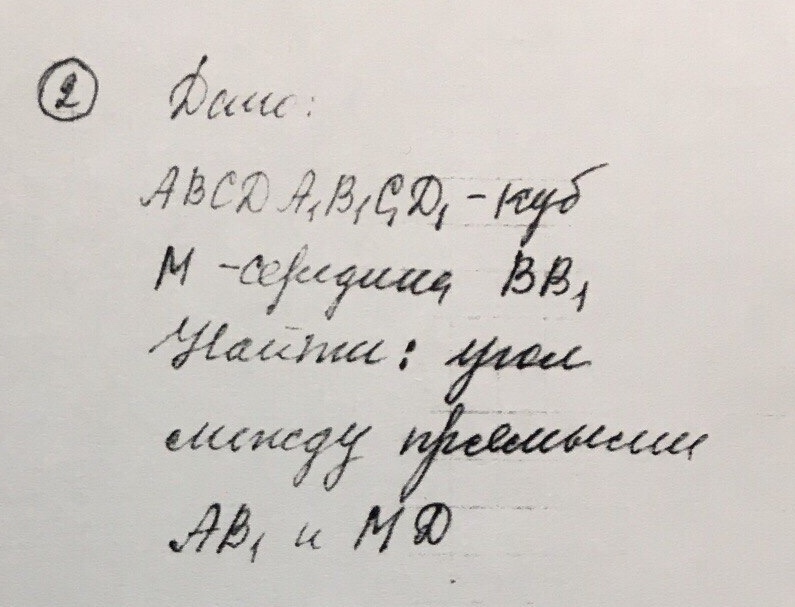 2 Дано:
ABCDA₁B₁C₁D₁ - куб
M - середина BB₁
Найти: угол
между прямыми
AB₁ и MD